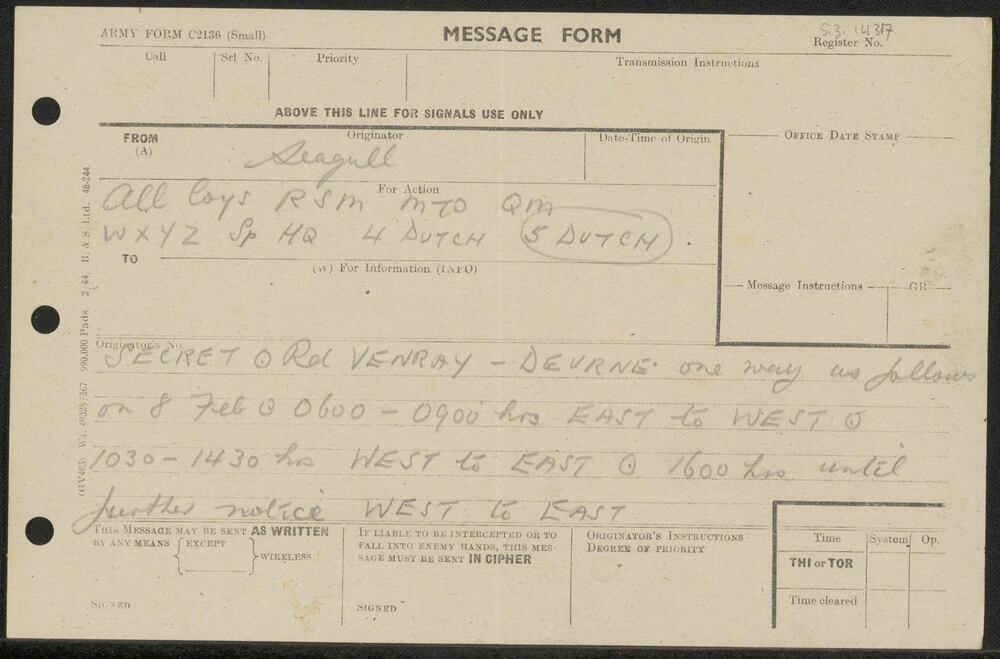 ARMY FORM C2136 (Small)
MESSAGE FORM
S.3. 14317
Register No.
Call
Srl No.
Priority
Transmission Instructions
ABOVE THIS LINE FOR SIGNALS USE ONLY
FROM
(A)
Originator
Date-Time of Origin
OFFICE DATE STAMP
Seagull
For Action
All Coys RSM MTO QM
WXYZ Sp HQ 4 DUTCH 5 DUTCH .
TO
(W) For Information (INFO)
Message Instructions
GR
Originator's No.
SECRET ⊙ Rd VENRAY - DEURNE. one way as follows
on 8 Feb ⊙ 0600 - 0900 hrs EAST to WEST ⊙
1030 - 1430 hrs WEST to EAST ⊙ 1600 hrs until
further notice WEST to EAST
THIS MESSAGE MAY BE SENT AS WRITTEN
BY ANY MEANS
EXCEPT
WIRELESS
SIGNED
IF LIABLE TO BE INTERCEPTED OR TO
FALL INTO ENEMY HANDS, THIS MES-
SAGE MUST BE SENT IN CIPHER
SIGNED
ORIGINATOR'S INSTRUCTIONS
DEGREE OF PRIORITY
Time
System
Op.
THI or TOR
Time cleared
990,000 Pads. 2/44. B. & S. Ltd. 48-244.